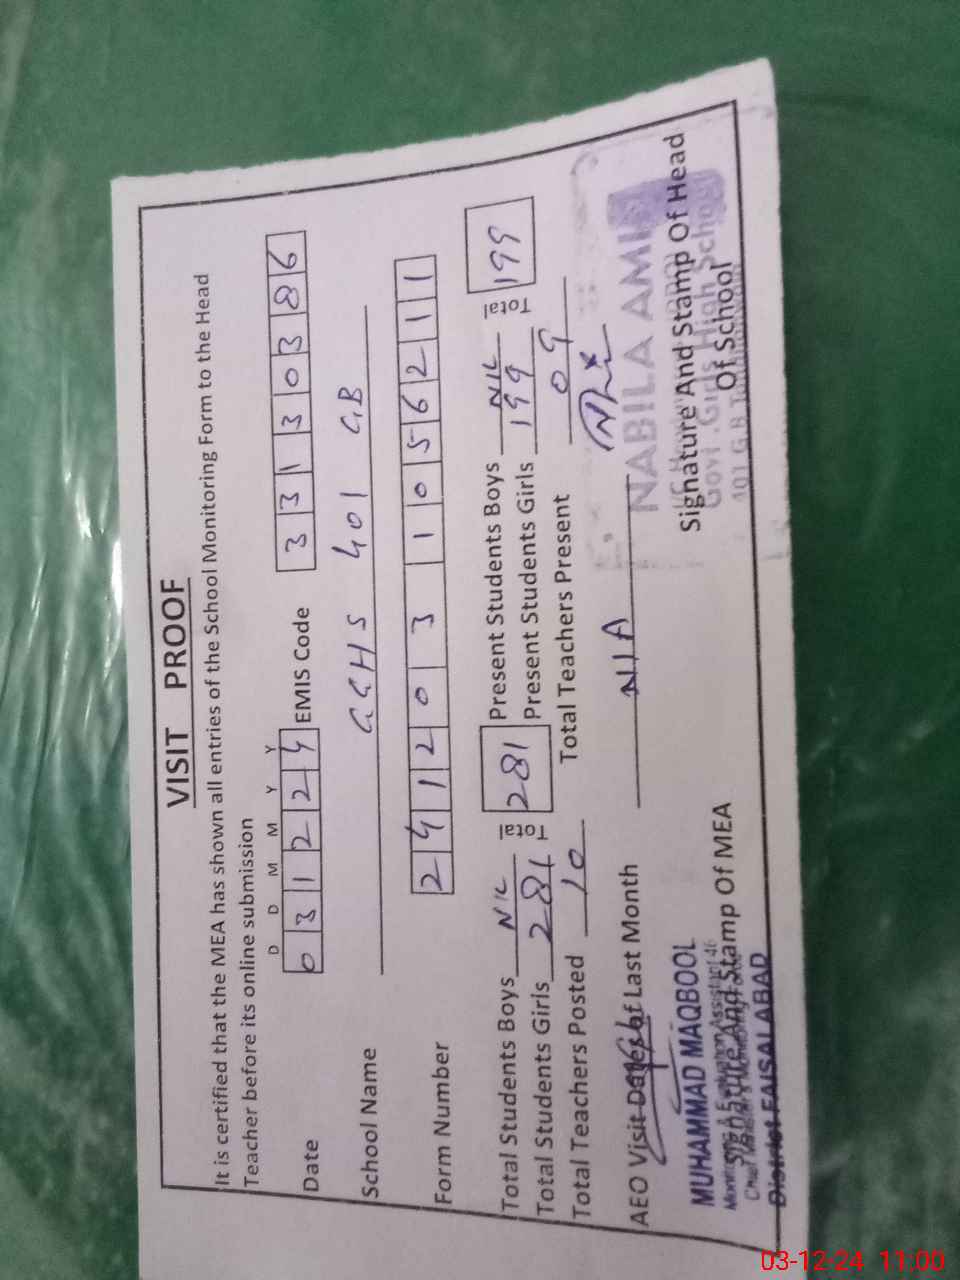 VISIT PROOF
It is certified that the MEA has shown all entries of the School Monitoring Form to the Head
Teacher before its online submission
D D M M Y Y
Date 0 3 1 2 2 4 EMIS Code 3 3 1 3 0 3 8 6
School Name GGHS 401 GB
Form Number 2 4 1 2 0 3 1 0 5 6 2 1 1
Total Students Boys NIL Total 281 Present Students Boys NIL Total 199
Total Students Girls 281 Present Students Girls 199
Total Teachers Posted 10 Total Teachers Present 09
AEO Visit Date of Last Month N/A
MUHAMMAD MAQBOOL
Monitoring & Evaluation Assistant 46
Signature And Stamp Of MEA
District FAISALABAD
NABILA AMI
Signature And Stamp Of Head
Govt. Girls High School
Of School
401 G.B
03-12-24 11:00